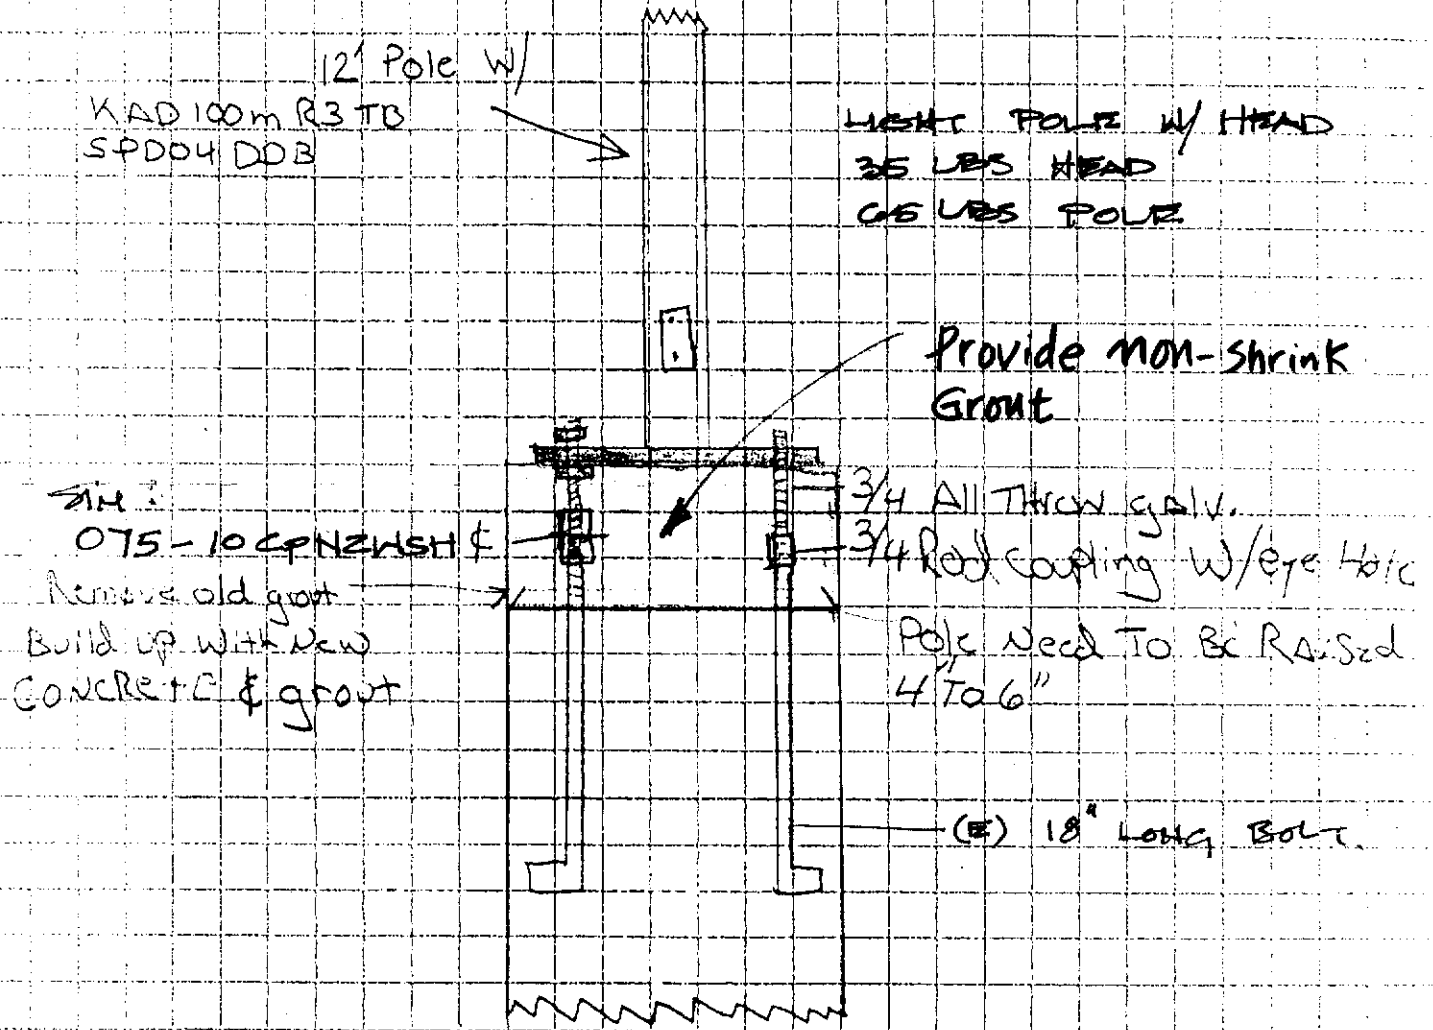 12' Pole W/
KAD 100m R3 TB
SPD04 DDB
LIGHT POLE W/ HEAD
35 LBS HEAD
65 LBS POLE
Provide non-shrink
Grout
SIM:
075-10CPNZWSH ¢
Remove old grout
Build up With New
CONCRETE & grout
3/4 All THROW galv.
3/4 Rod coupling W/eye Hole
Pole Need To Be Raised
4" To 6"
(E) 18" LONG BOLT.